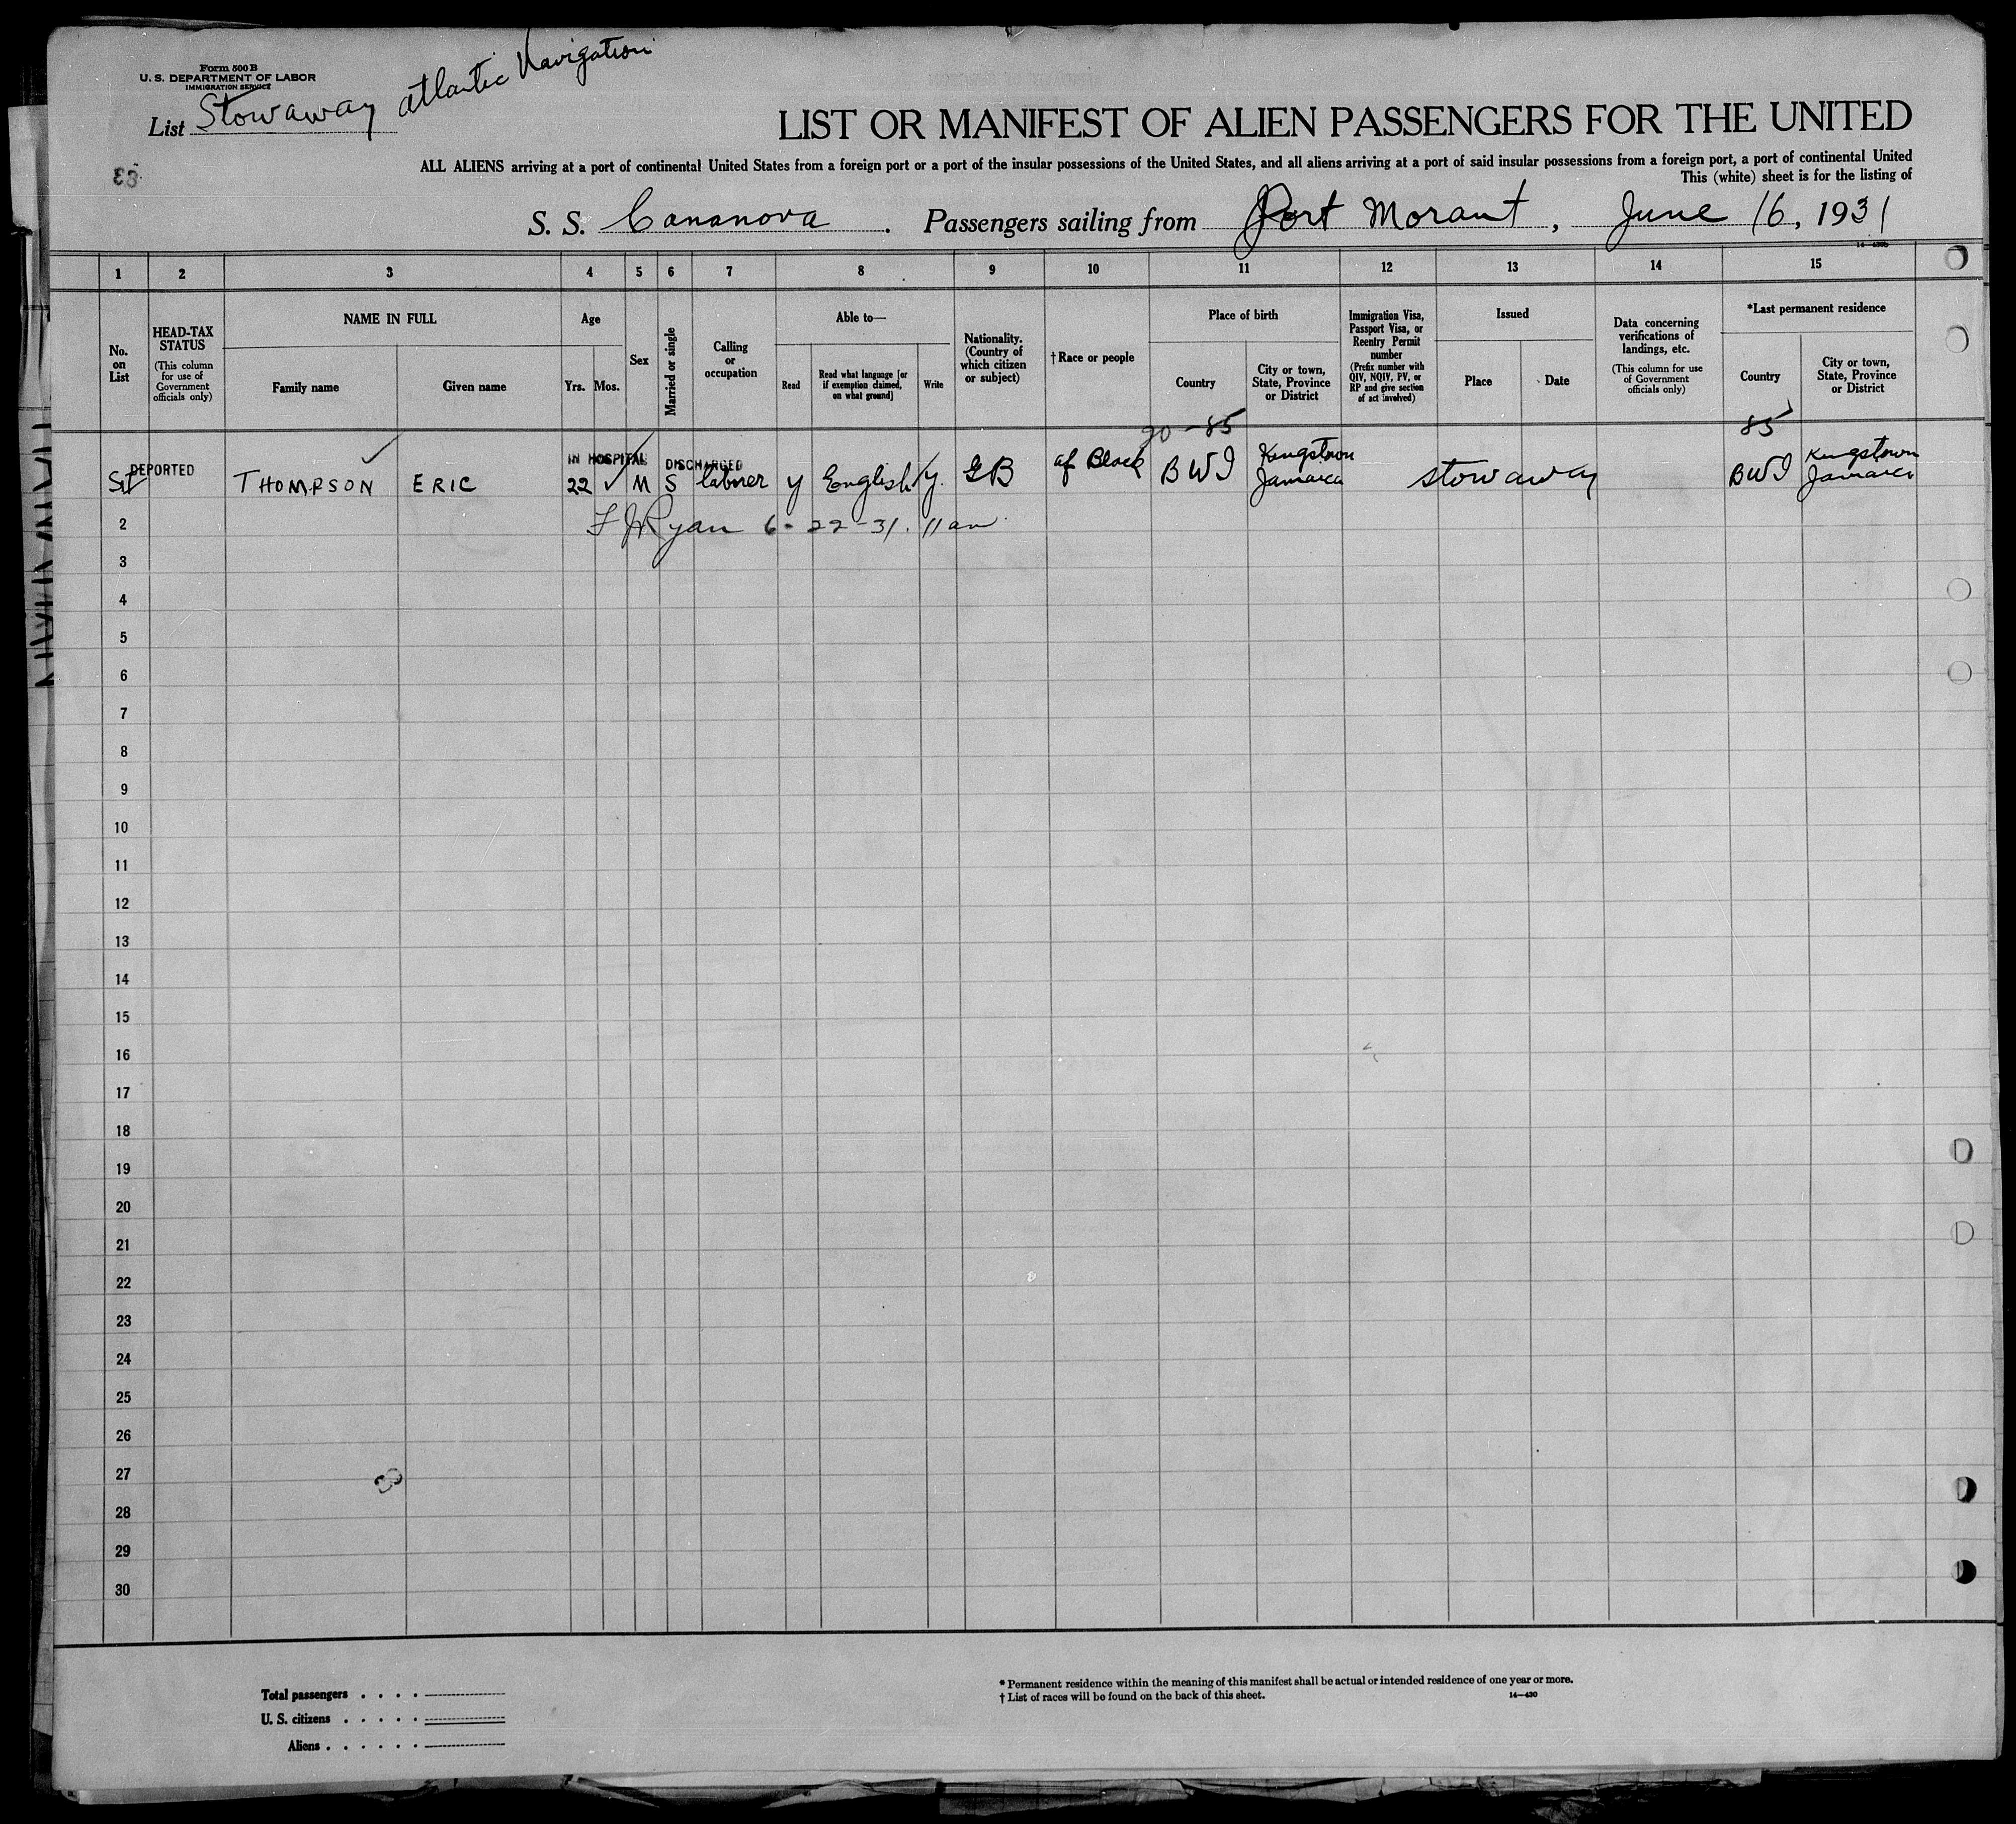 Form 500 B
U. S. DEPARTMENT OF LABOR
IMMIGRATION SERVICE
List Stowaway Atlantic Navigation
LIST OR MANIFEST OF ALIEN PASSENGERS FOR THE UNITED
ALL ALIENS arriving at a port of continental United States from a foreign port or a port of the insular possessions of the United States, and all aliens arriving at a port of said insular possessions from a foreign port, a port of continental United
This (white) sheet is for the listing of
S. S. Cananova. Passengers sailing from Port Morant, June 16, 1931
14—430b
1 2 3 4 5 6 7 8 9 10 11 12 13 14 15
No. on List
HEAD-TAX STATUS
(This column for use of Government officials only)
NAME IN FULL
Family name
Given name
Age
Yrs. Mos.
Sex
Married or single
Calling or occupation
Able to—
Read
Read what language [or if exemption claimed, on what ground]
Write
Nationality. (Country of which citizen or subject)
†Race or people
Place of birth
Country
City or town, State, Province or District
Immigration Visa, Passport Visa, or Reentry Permit number
(Prefix number with QIV, NQIV, PV, or RP and give section of act involved)
Issued
Place
Date
Data concerning verifications of landings, etc.
(This column for use of Government officials only)
*Last permanent residence
Country
City or town, State, Province or District
90-85 85
DEPORTED IN HOSPITAL DISCHARGED
THOMPSON ERIC 22 ✓ M S laborer y English y. GB af Black BWI Kingstown Jamaica stowaway BWI Kingstown Jamaica
2 F J Ryan 6-22-31. 11 am
3
4
5
6
7
8
9
10
11
12
13
14
15
16
17
18
19
20
21
22
23
24
25
26
27
28
29
30
Total passengers . . . .
U. S. citizens . . . . .
Aliens . . . . . .
* Permanent residence within the meaning of this manifest shall be actual or intended residence of one year or more.
† List of races will be found on the back of this sheet.
14—430